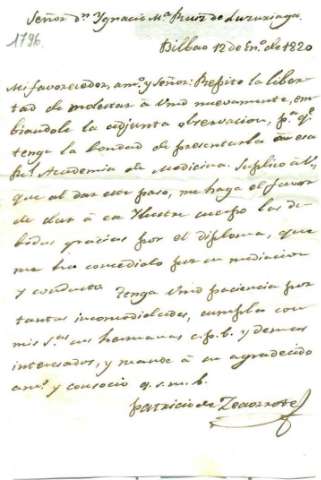 Señor Dn Ygnacio Ma Ruiz de Luzuriaga.
1796
Bilbao 12 de Eno. de 1820
Mi favorecedor, amo. y Señor: Repito la liber-
tad de molestar à Vmd nuevamente, em-
biandole la adjunta observacion, pa. qe.
tenga la bondad de presentarla à esa
Rl. Academia de Medicina. Suplico à V,
que al dar este paso, me haga el favor
de dar à ese Ilustre cuerpo las de-
bidas gracias por el diploma, que
me ha concedido por su mediacion
y conducto. Tenga Vmd paciencia por
tantas incomodidades, cumpla con
mis s.as sus hermanas c.p.b. y demas
interesados, y mande à su agradecido
amo. y consocio q.s.m.b.
Patricio de